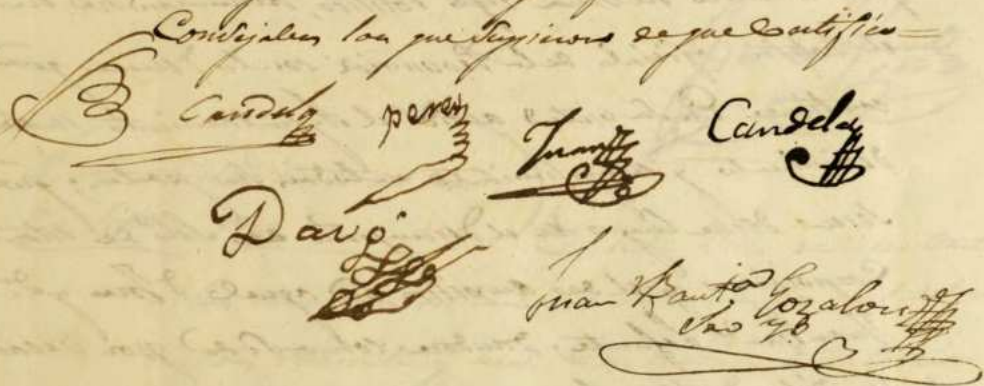 Consejales los que supieron de que Certifico =
Candela perez Juan Candela
Davó
Juan Bauta Gozalvez
Srio